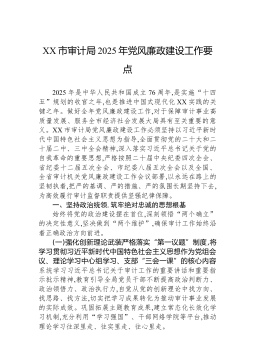 XX 市审计局 2025 年党风廉政建设工作要
点
2025 年是中华人民共和国成立 76 周年,是实施“十四
五”规划的收官之年,也是推进中国式现代化 XX 实践的关
键之年。做好全年党风廉政建设工作,对于保障审计事业高
质量发展、服务全市经济社会发展大局具有至关重要的意
义。XX 市审计局党风廉政建设工作必须坚持以习近平新时
代中国特色社会主义思想为指导,全面贯彻党的二十大和二
十届二中、三中全会精神,深入落实习近平总书记关于党的
自我革命的重要思想,严格按照二十届中央纪委四次全会、
省纪委十二届五次全会、市纪委八届五次全会以及全国、
全省审计机关党风廉政建设工作会议部署,以永远在路上的
坚韧执着,把严的基调、严的措施、严的氛围长期坚持下去,
为高效履行审计监督职责提供坚强纪律保障。
一、坚持政治统领,筑牢绝对忠诚的思想根基
始终将党的政治建设摆在首位,深刻领悟“两个确立”
的决定性意义,坚决做到“两个维护”,确保审计工作始终
沿着正确政治方向前进。
(一)强化创新理论武装严格落实“第一议题”制度,将
学习贯彻习近平新时代中国特色社会主义思想作为党组会
议、理论学习中心组学习、支部“三会一课”的核心内容
系统学习习近平总书记关于审计工作的重要讲话和重要指
示批示精神,教育引导全局党员干部不断提高政治判断力、
政治领悟力、政治执行力,自觉从党的创新理论中找方向、
找思路、找方法,切实把学习成果转化为推动审计事业发展
的实际成效。巩固拓展主题教育成果,建立常态化长效化学
习机制,充分利用“学习强国”、干部网络学院等平台,推动
理论学习往深里走、往实里走、往心里走。